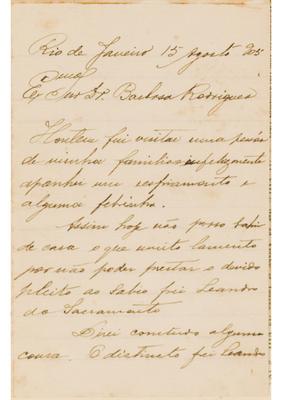 Rio de Janeiro 15 Agosto 905
Exmo Snr Dr. Barbosa Rodrigues
Hontem fui visitar uma pessôa
de minha familia infelizmente
apanhei um resfriamento e
alguma febrinha.
Assim hoje não posso sahir
de casa o que muito lamento
por não poder prestar o devido
pleito ao sabio frei Leandro
do Sacramento
Direi comtudo alguma
cousa. O distincto frei Leandro